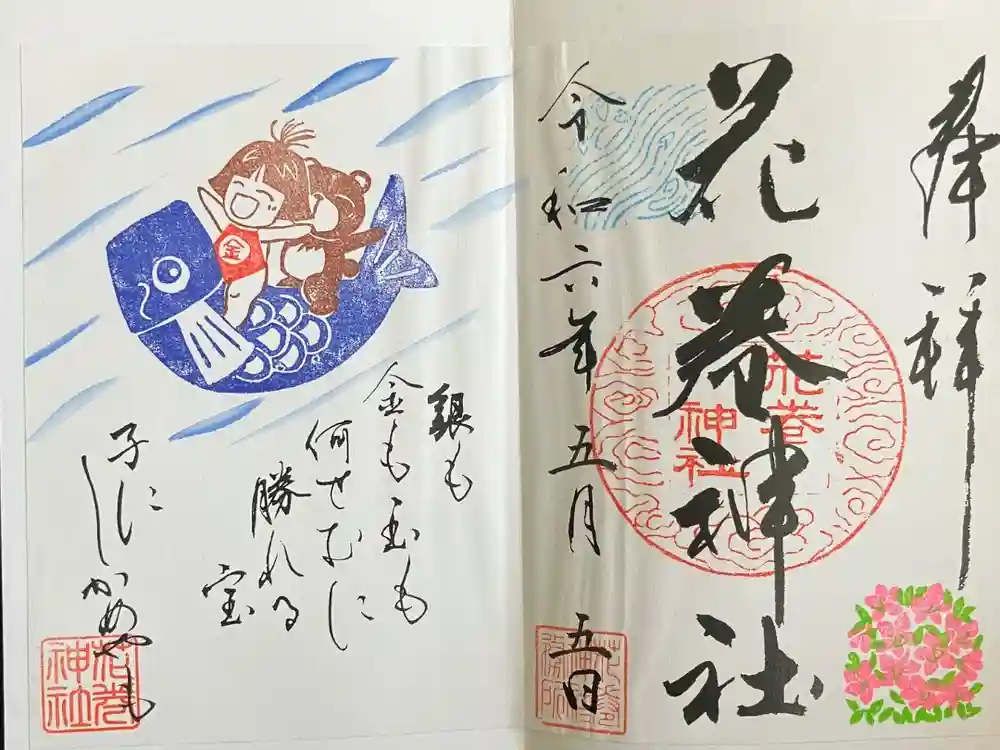 奉拝
花巻神社
花巻
神社
令和六年五月五日
花巻
神社
務所
銀も
金も玉も
何せむに
勝れる
宝
子にしかめやも
花巻
神社
金